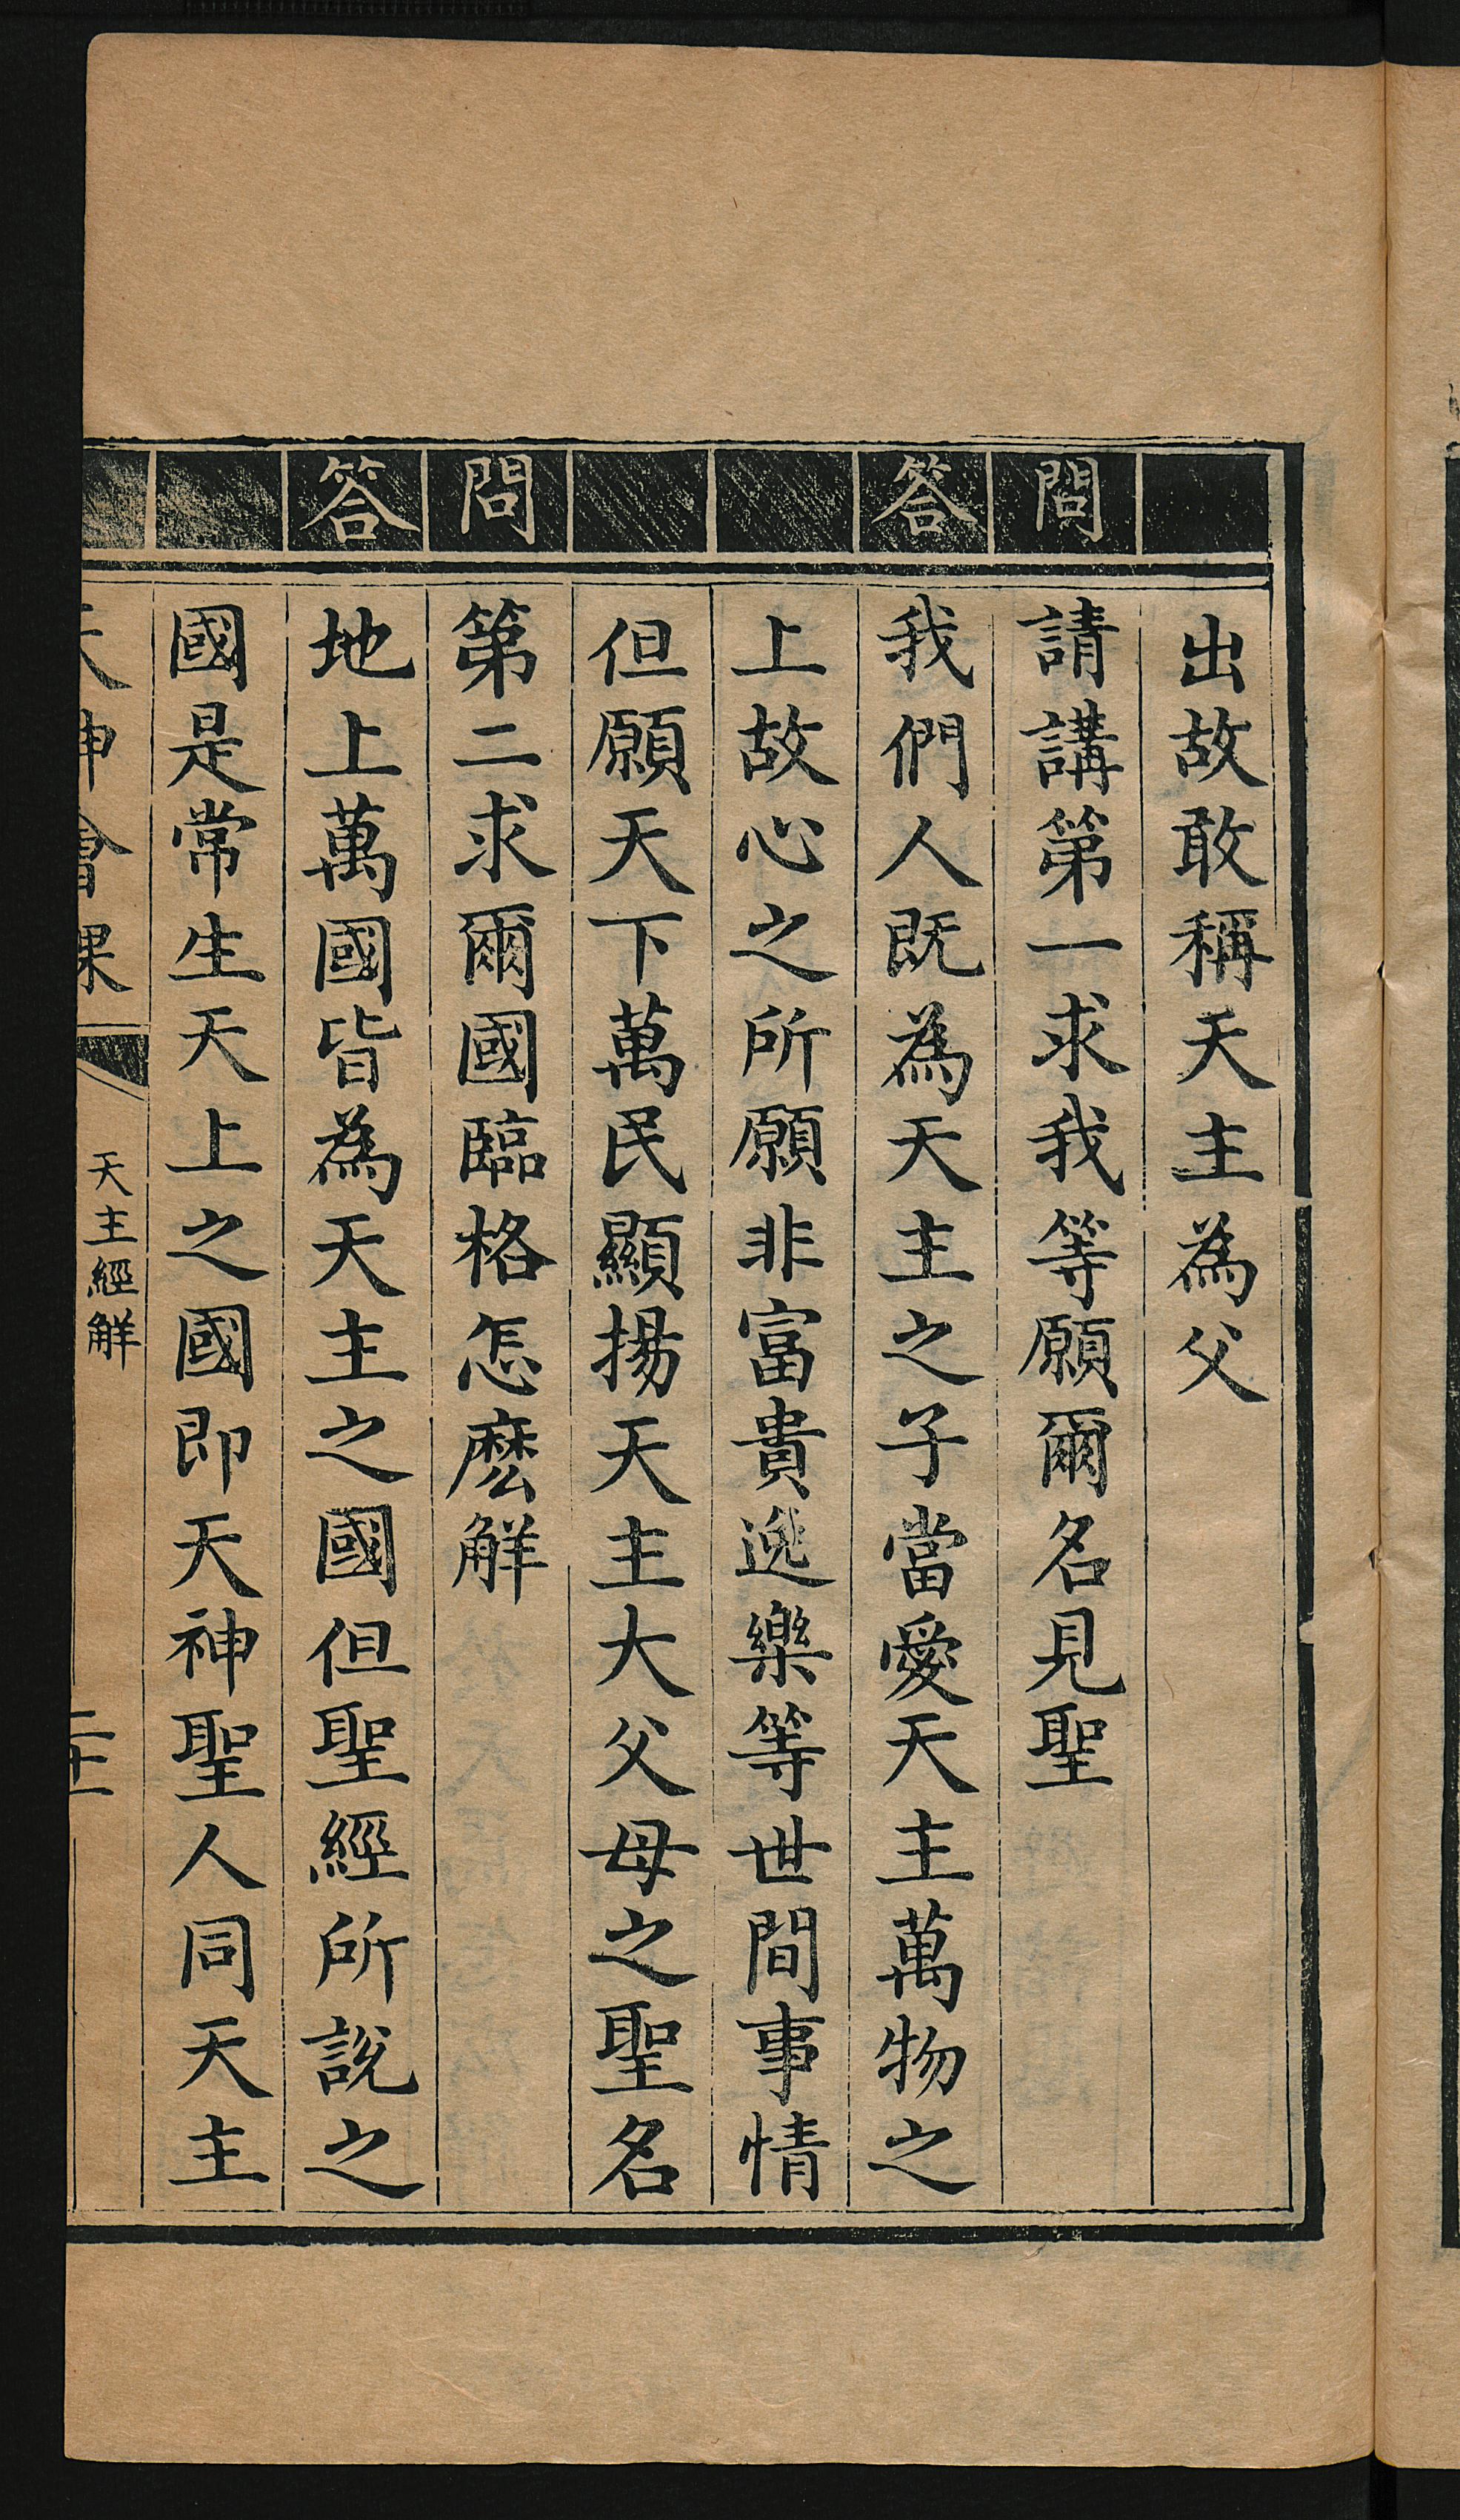 出故敢稱天主為父
問 請講第一求我等願爾名見聖
答 我們人既為天主之子當愛天主萬物之
上故心之所願非富貴逸樂等世間事情
但願天下萬民顯揚天主大父母之聖名
問 第二求爾國臨格怎麽解
答 地上萬國皆為天主之國但聖經所說之
國是常生天上之國即天神聖人同天主
天神會課 天主經解